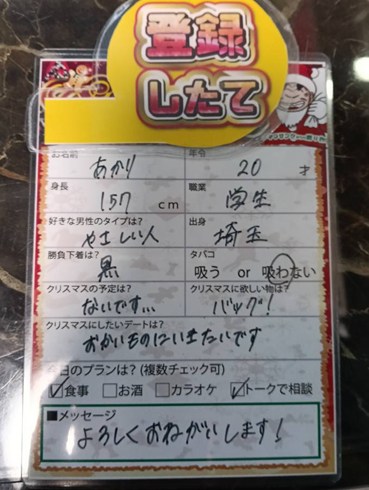 登録
したて
お名前 あかり 年令 20 才
身長 157 cm 職業 学生
好きな男性のタイプは? やさしい人 出身 埼玉
勝負下着は? 黒 タバコ 吸う or 吸わない
クリスマスの予定は? ないです... クリスマスに欲しい物は? バッグ!
クリスマスにしたいデートは?
おかいものにいきたいです
今日のプランは? (複数チェック可)
☑食事 □お酒 □カラオケ ☑トークで相談
■メッセージ
よろしくおねがいします!